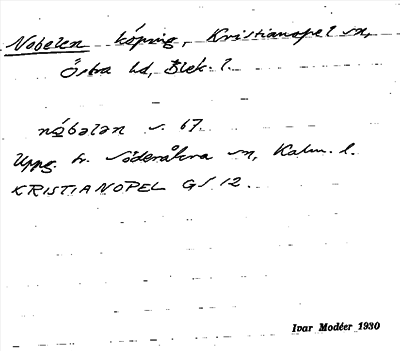 Nobelen köping, Kristianopel sn,
Östra hd, Blek. l.
nǫ́bələn s. 67.
Uppg. fr. Söderåkra sn, Kalm. l.
KRISTIANOPEL GS 12.
Ivar Modéer 1930